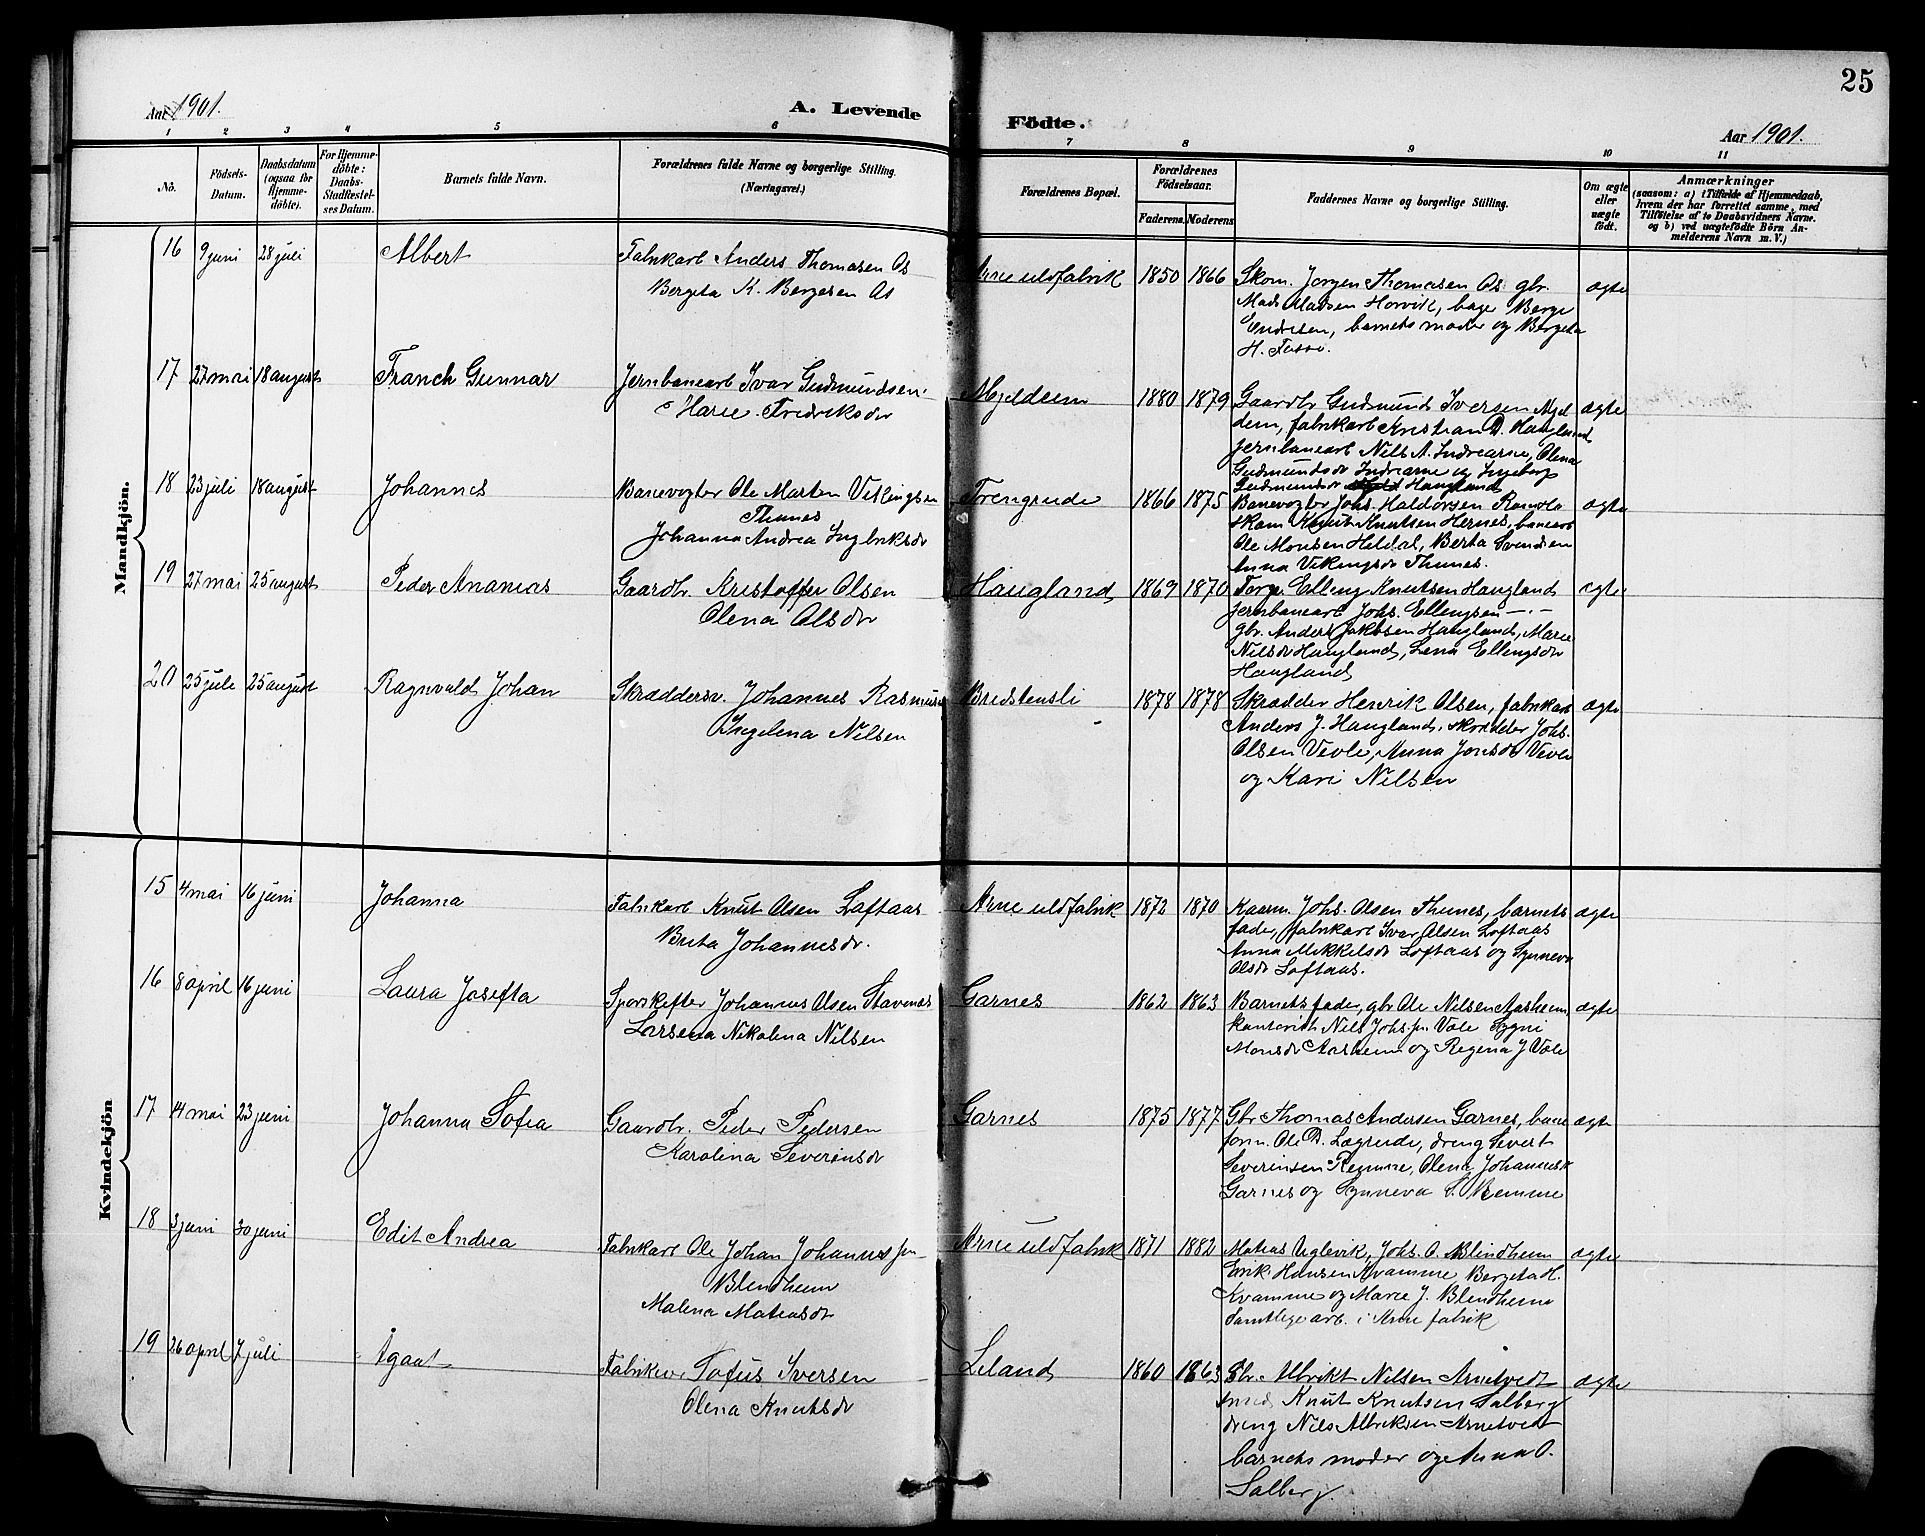 25
Aar 1901.
A. Levende Födte.
Aar 1901.
1 2 3 4 5 6 7 8 9 10 11
No.
Födsels-Datum.
Daabsdatum (ogsaa for Hjemme-döbte).
For Hjemme-döbte: Daabs-Stadfæstel-ses Datum.
Barnets fulde Navn.
Forældrenes fulde Navne og borgerlige Stilling. (Næringsvei.)
Forældrenes Bopæl.
Forældrenes Födselsaar.
Faderens. Moderens
Faddernes Navne og borgerlige Stilling.
Om ægte eller uægte födt.
Anmærkninger
(saasom: a) i Tilfælde af Hjemmedaab, hvem der har forrettet samme, med Tilföielse af to Daabsvidners Navne. og b) ved uægtefödte Börn An-melderens Navn m. V.)
Mandkjön.
16 9 juni 28 juli Albert Fabrikarb Anders Thomasen Os Arne uldfabrik 1850 1866 Skom. Jorgen Thomasen Os gbr. ægte
Bergeta K. Bergesen Os
Mads Madsen Horvik, bager Berge
Endresen, barnets moder og Bergeta
H. Fosse.
17 27 mai 18 august Franch Gunnar Jernbanearb Ivar Gudmundsen Mjeldeem 1880 1879 Gaardbr Gudmund Iversen Mjel ægte
Marie Fredriksdr
dem, fabrikarb Kristian D. Haugland
jernbanearb Nils A. Indrearne, Olena
Gudmundsdr Indrearne og Ingeborg
Gudmundsdr Haugland
18 23 juli 18 august Johannes Banevogter Ole Marten Vikingsen Trengreide 1866 1875 Banevogter Johs. Haldorsen Romslo ægte
Thunes
Johanna Andrea Ingbriksdr
skom Knut Knutsen Hernes, banearb
Ole Monsen Hildal, Berta Svendsen
Anna Vikingsdr Thunes.
19 27 mai 25 august Peder Ananias Gaardbr. Kristoffer Olsen Haugland 1869 1870 Forp. Elling Knutsen Haugland ægte
Olena Olsdr
jernbanearb Johs. Ellingsen — " —
gbr. Anders Jakobsen Haugland, Marie
Nilsdr Haugland, Lena Ellingsdr
Haugland
20 25 juli 25 august Ragnvald Johan Skræddersv. Johannes Rasmus Bredstensli 1878 1878 Skrædder Henrik Olsen, fabrikarb ægte
Ingelena Nilsen
Anders J. Haugland, skrædder Johs.
Olsen Vevle, Anna Jonsdr Vevle
og Kari Nilsen
Kvindekjön
15 4 mai 16 juni Johanna Fabrikarb Knut Olsen Loftaas Arne uldfabrik 1872 1870 Kaarm. Johs. Olsen Thunes, barnets ægte
Brita Johannesdr.
fader, fabrikarb Ivar Olsen Loftaas
Anna Mikkelsdr Loftaas og Synneva
Olsdr Loftaas.
16 8 april 16 juni Laura Josefta Sporskifter Johannes Olsen Stavenes Garnes 1862 1863 Barnets fader, gbr Ole Nilsen Aasheim ægte
Larsena Nikolena Nilsen
Nils Johs.sn Vale Sygni
Monsdr Aasheim og Regena J Vale
17 14 mai 23 juni Johanna Sofia Gaardbr. Peder Pedersen Garnes 1875 1877 Gbr Thomas Andersen Garnes, bane ægte
Karolina Severinsdr
form. Ole D. Lægreide, dreng Severt
Severinsen Remme, Olena Johannesdr
Garnes og Synneva S. Remme
18 3 juni 30 juni Edit Andrea Fabrikarb Ole Johan Johannessen Arne uldfabrik 1871 1882 Matias Uglevik, Johs. O. Blindheim ægte
Blindheim
Malena Matiasdr
Erik Hansen Kvamme, Bergeta H.
Kvamme og Marie J. Blindheim
samtlige arb. i Arne fabrik
19 26 april 7 juli Agaat Fabrikarb Tofus Iversen Leland 1860 1863 Gbr. Albrikt Nilsen Arnetvedt ægte
Olena Knutsdr
smed Knut Knutsen Salberg
dreng Nils Albriksen Arnetvedt
barnets moder og Anna O.
Salberg.